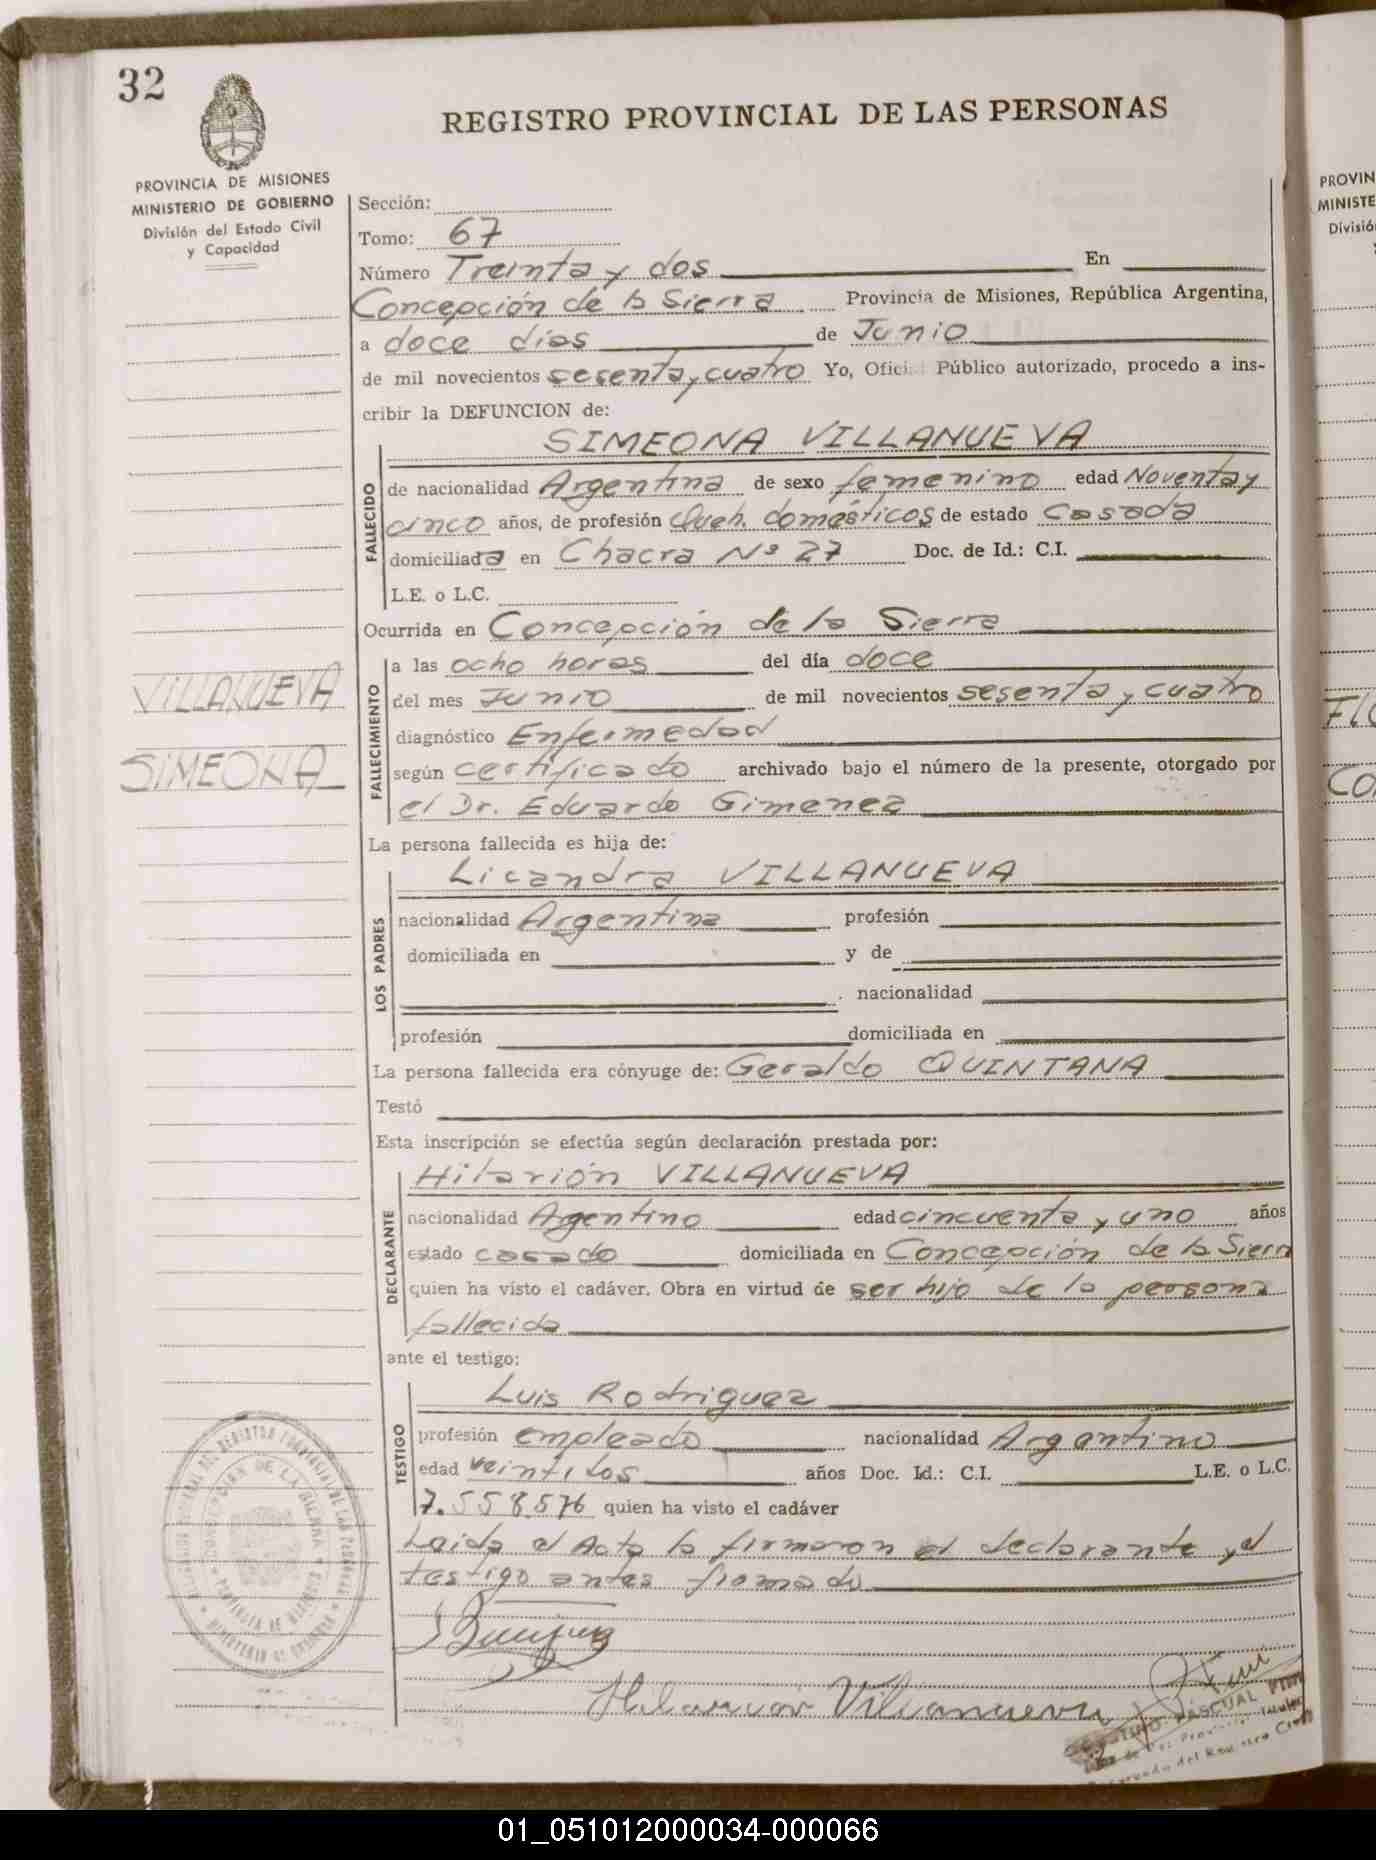 32
REGISTRO PROVINCIAL DE LAS PERSONAS
PROVINCIA DE MISIONES
MINISTERIO DE GOBIERNO
División del Estado Civil
y Capacidad
Sección:
Tomo: 67
Número Treinta y dos En
Concepción de la Sierra Provincia de Misiones, República Argentina,
a doce días de Junio
de mil novecientos sesenta y cuatro Yo, Público autorizado, procedo a ins-
cribir la DEFUNCION de:
SIMEONA VILLANUEVA
FALLECIDO
de nacionalidad Argentina de sexo femenino edad Noventa y
cinco años, de profesión Queh. domésticos de estado Casada
domiciliada en Chacra Nº 27 Doc. de Id.: C.I.
L.E. o L.C.
Ocurrida en Concepción de la Sierra
FALLECIMIENTO
a las ocho horas del día doce
del mes Junio de mil novecientos sesenta y cuatro
diagnóstico Enfermedad
según certificado archivado bajo el número de la presente, otorgado por
el Dr. Eduardo Gimenez
VILLANUEVA
SIMEONA
La persona fallecida es hija de:
Licandra VILLANUEVA
LOS PADRES
nacionalidad Argentina profesión
domiciliada en y de
nacionalidad
profesión domiciliada en
La persona fallecida era cónyuge de: Geraldo QUINTANA
Testó
Esta inscripción se efectúa según declaración prestada por:
Hilarión VILLANUEVA
DECLARANTE
nacionalidad Argentino edad cincuenta y uno años
estado casado domiciliada en Concepción de la Sierra
quien ha visto el cadáver. Obra en virtud de ser hijo de la persona
fallecida
ante el testigo:
Luis Rodriguez
TESTIGO
profesión empleado nacionalidad Argentino
edad veintidos años Doc. Id.: C.I. L.E. o L.C.
7.558.576 quien ha visto el cadáver
Leida el Acta la firmaron el declarante y el
testigo antes firmado
Hilarion Villanueva
PASCUAL
PROVIN
MINISTE
Divisió
FLO
CO
01_051012000034-000066